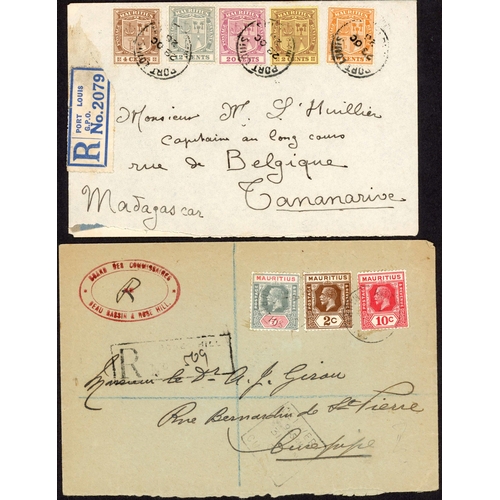 MAURITIUS MAURITIUS MAURITIUS MAURITIUS MAURITIUS
4 CENTS CENTS 20 CENTS CENTS CENTS
PORT LOUIS
G.P.O.
R No. 2079
Monsieur M. L'Huillier
capitaine au long cours
rue de Belgique
Madagascar Tananarive
BEAU BASSIN & ROSE HILL
R
MAURITIUS MAURITIUS MAURITIUS
2C 10C
R HILL
569
Monsieur le Dr A. J. Girou
Rue Bernardin de St Pierre
Curepipe